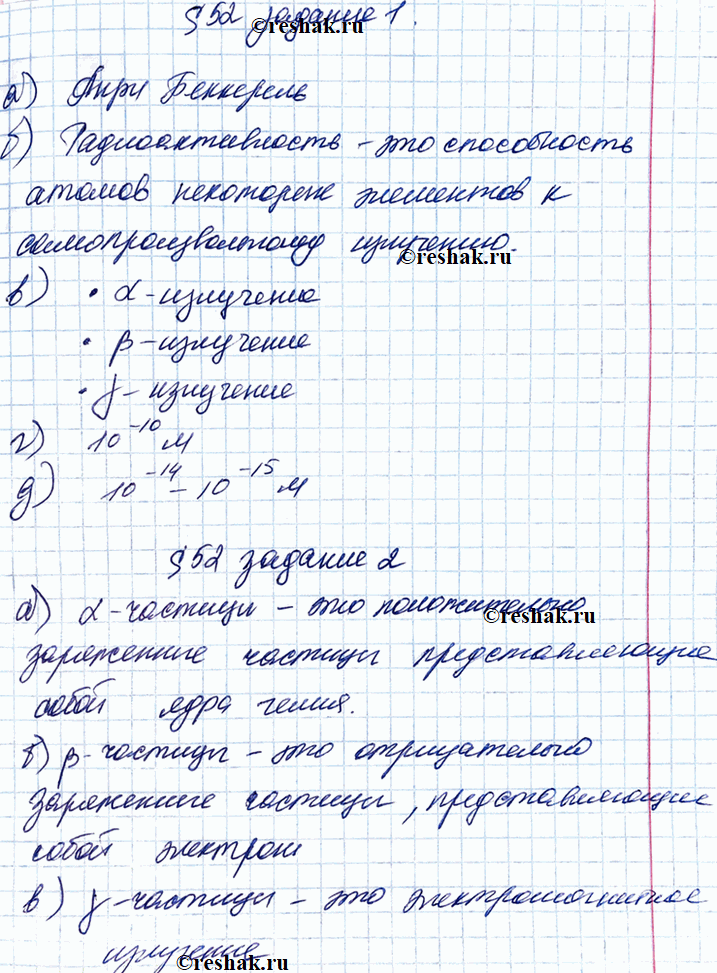 § 52 задание 1.
©reshak.ru
а) Анри Беккерель
б) Радиоактивность - это способность
атомов некоторых элементов к
самопроизвольному излучению.
©reshak.ru
в) • α - излучение
• β - излучение
• γ - излучение
г) 10⁻¹⁰ м
д) 10⁻¹⁴ - 10⁻¹⁵ м
§ 52 задание 2
а) α - частицы - это положительно
©reshak.ru
заряженные частицы представляющие
собой ядра гелия.
б) β - частицы - это отрицательно
заряженные частицы, представляющие
собой электроны
в) γ - частицы - это электромагнитное
излучение
©reshak.ru